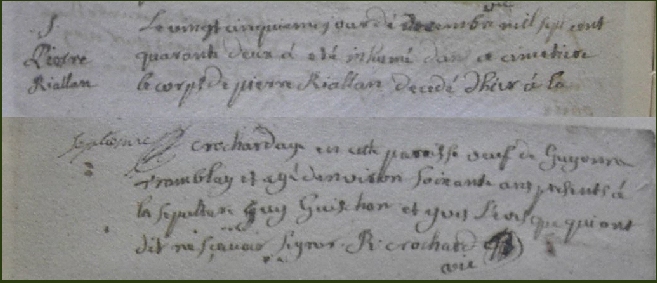 S
Le vingt cinquieme jour de decembre mil sept cent
Pierre
quarante deux a eté inhumé dans ce cimetiere
Riallan
le corps de pierre Riallan decedé d'hier á la
crochardaye en cette paroisse veuf de Guyonne
Tramblay et agé denviron soixante ans presents á
la sepulture Guy Guischar et yves qui ont
dit ne sçavoir signer. R. crochard